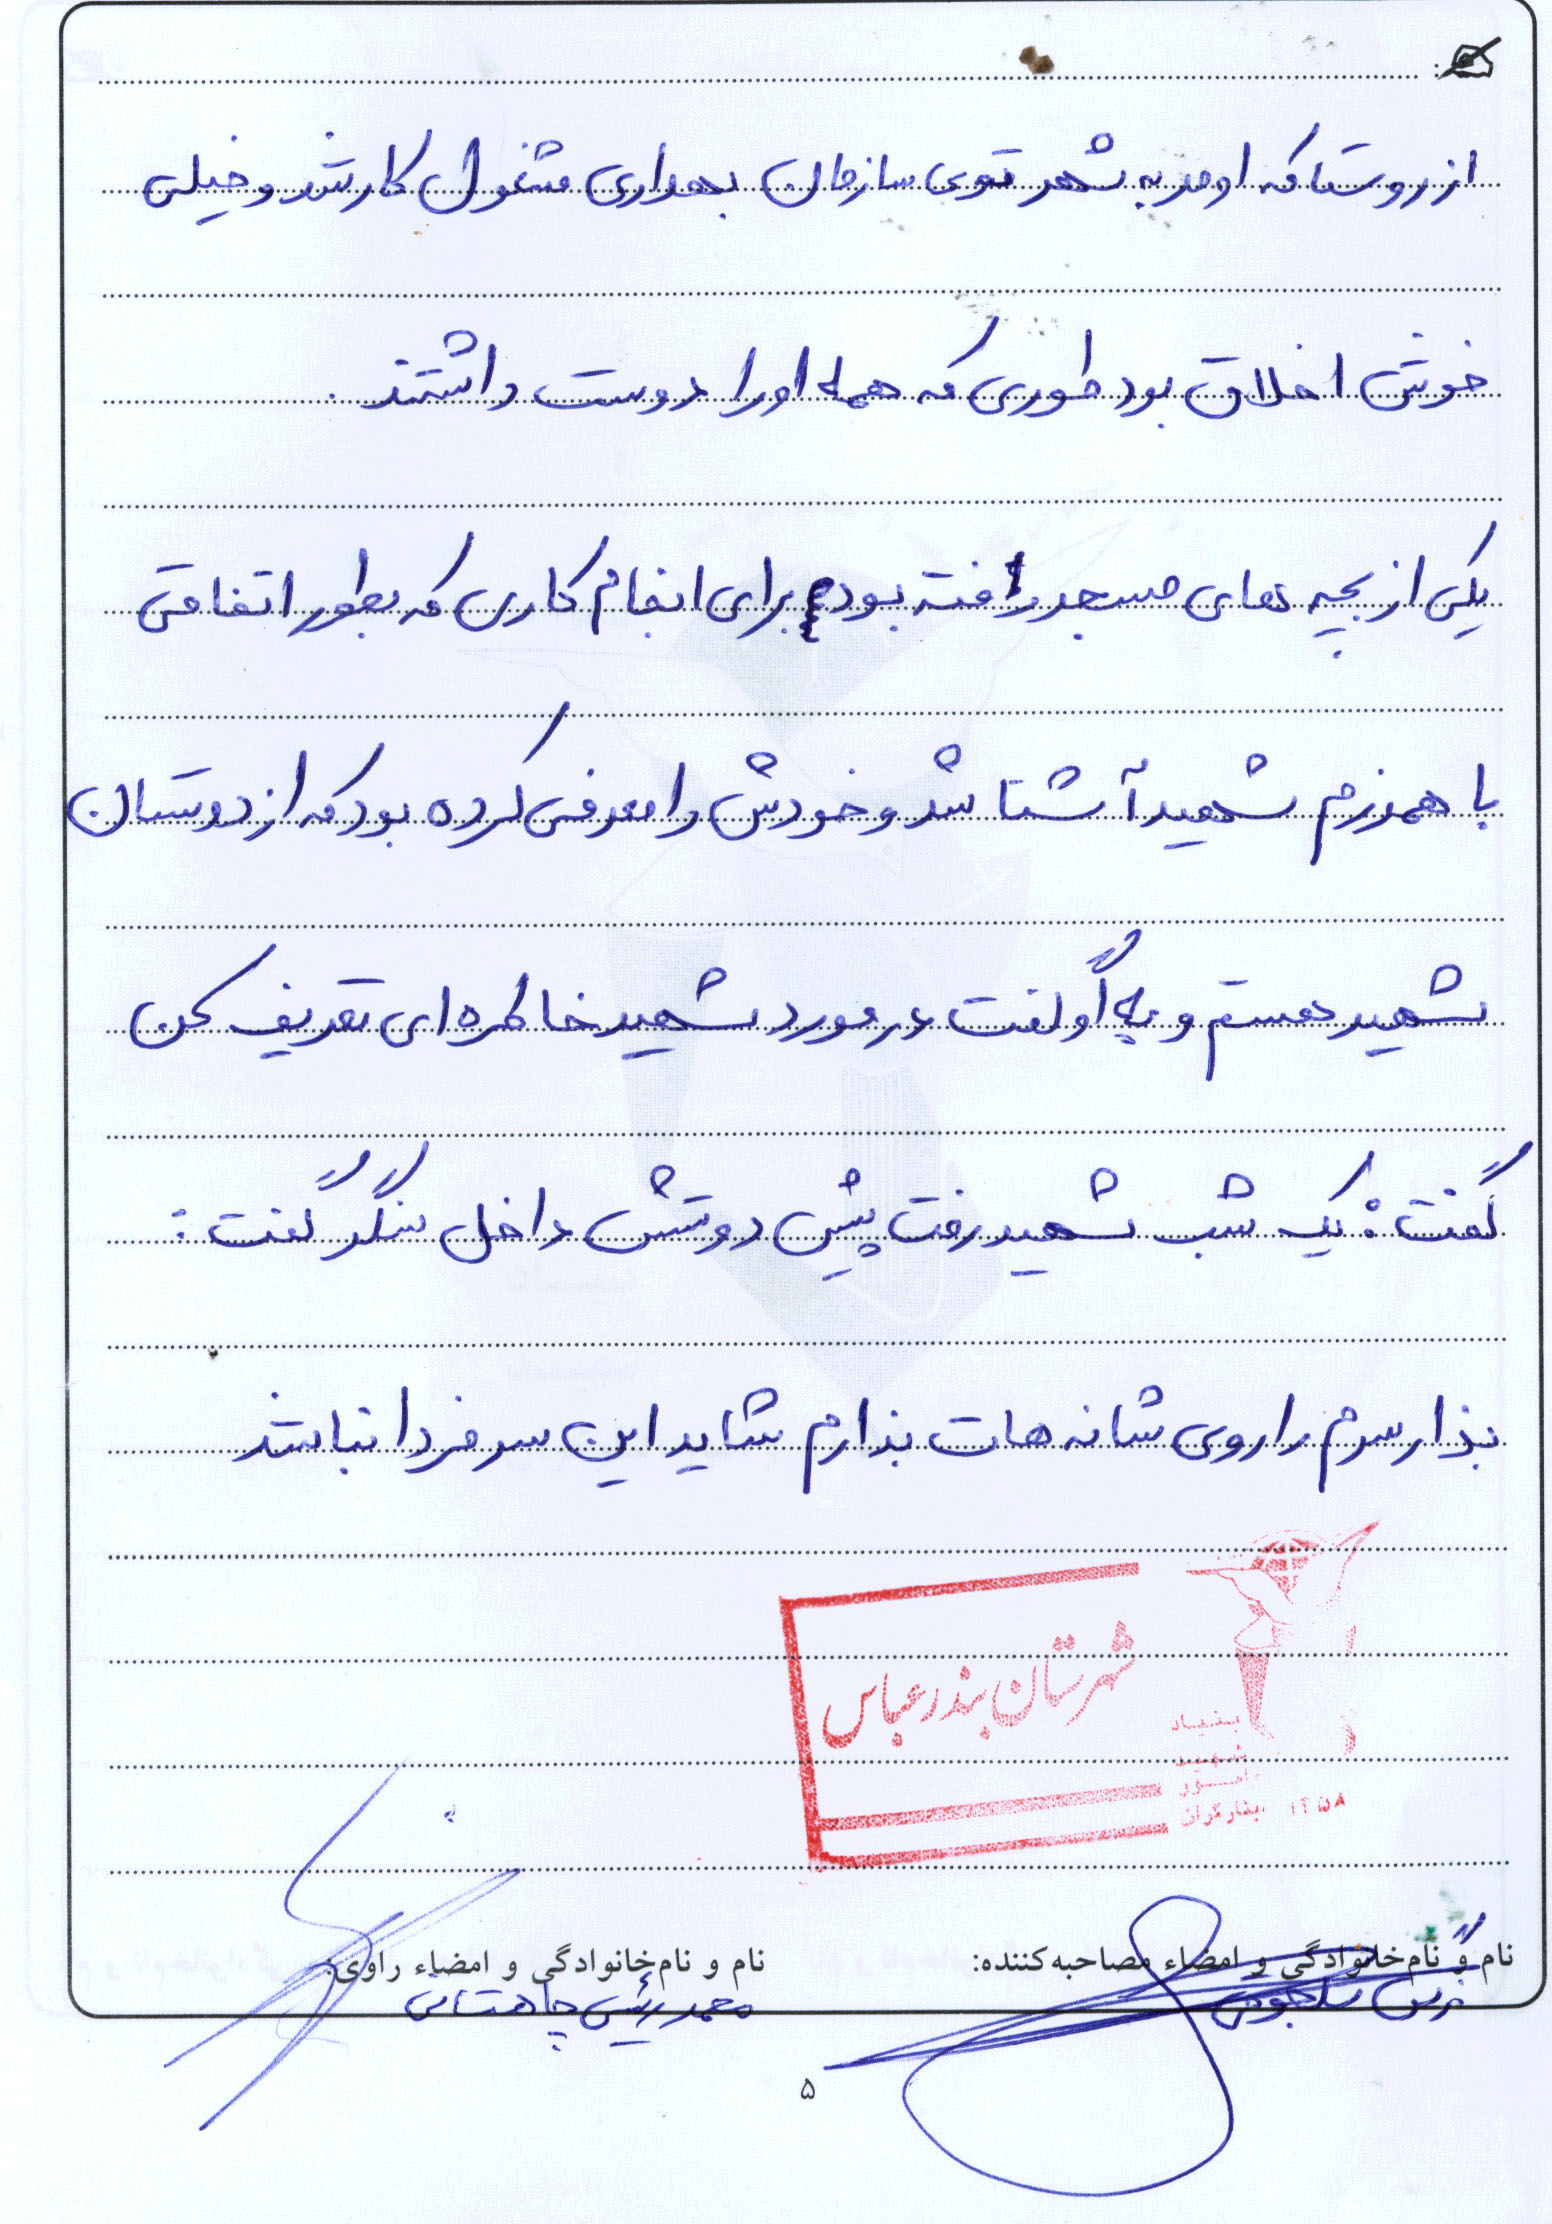 از روستا که اومد به شهر توی سازمان بهداری مشغول کار شد و خیلی
خوش اخلاق بود طوری که همه او را دوست داشتند .
یکی از بچه های مسجد رفته بود برای انجام کاری که بطور اتفاقی
با همرزم شهید آشنا شد و خودش را معرفی کرده بود که از دوستان
شهید هستم و به او گفت در مورد شهید خاطره ای تعریف کن
گفت : یک شب شهید رفت پیش دوستش داخل سنگر گفت :
بذار سرم را روی شانه هات بذارم شاید این سر فردا نباشد
شهرستان بندرعباس
بنیاد
شهید
امور
ایثارگران ۱۳۵۸
نام و نام‌خانوادگی و امضاء مصاحبه‌کننده: نام و نام‌خانوادگی و امضاء راوی:
نرگس سلجوقی محمد رئیسی
۵